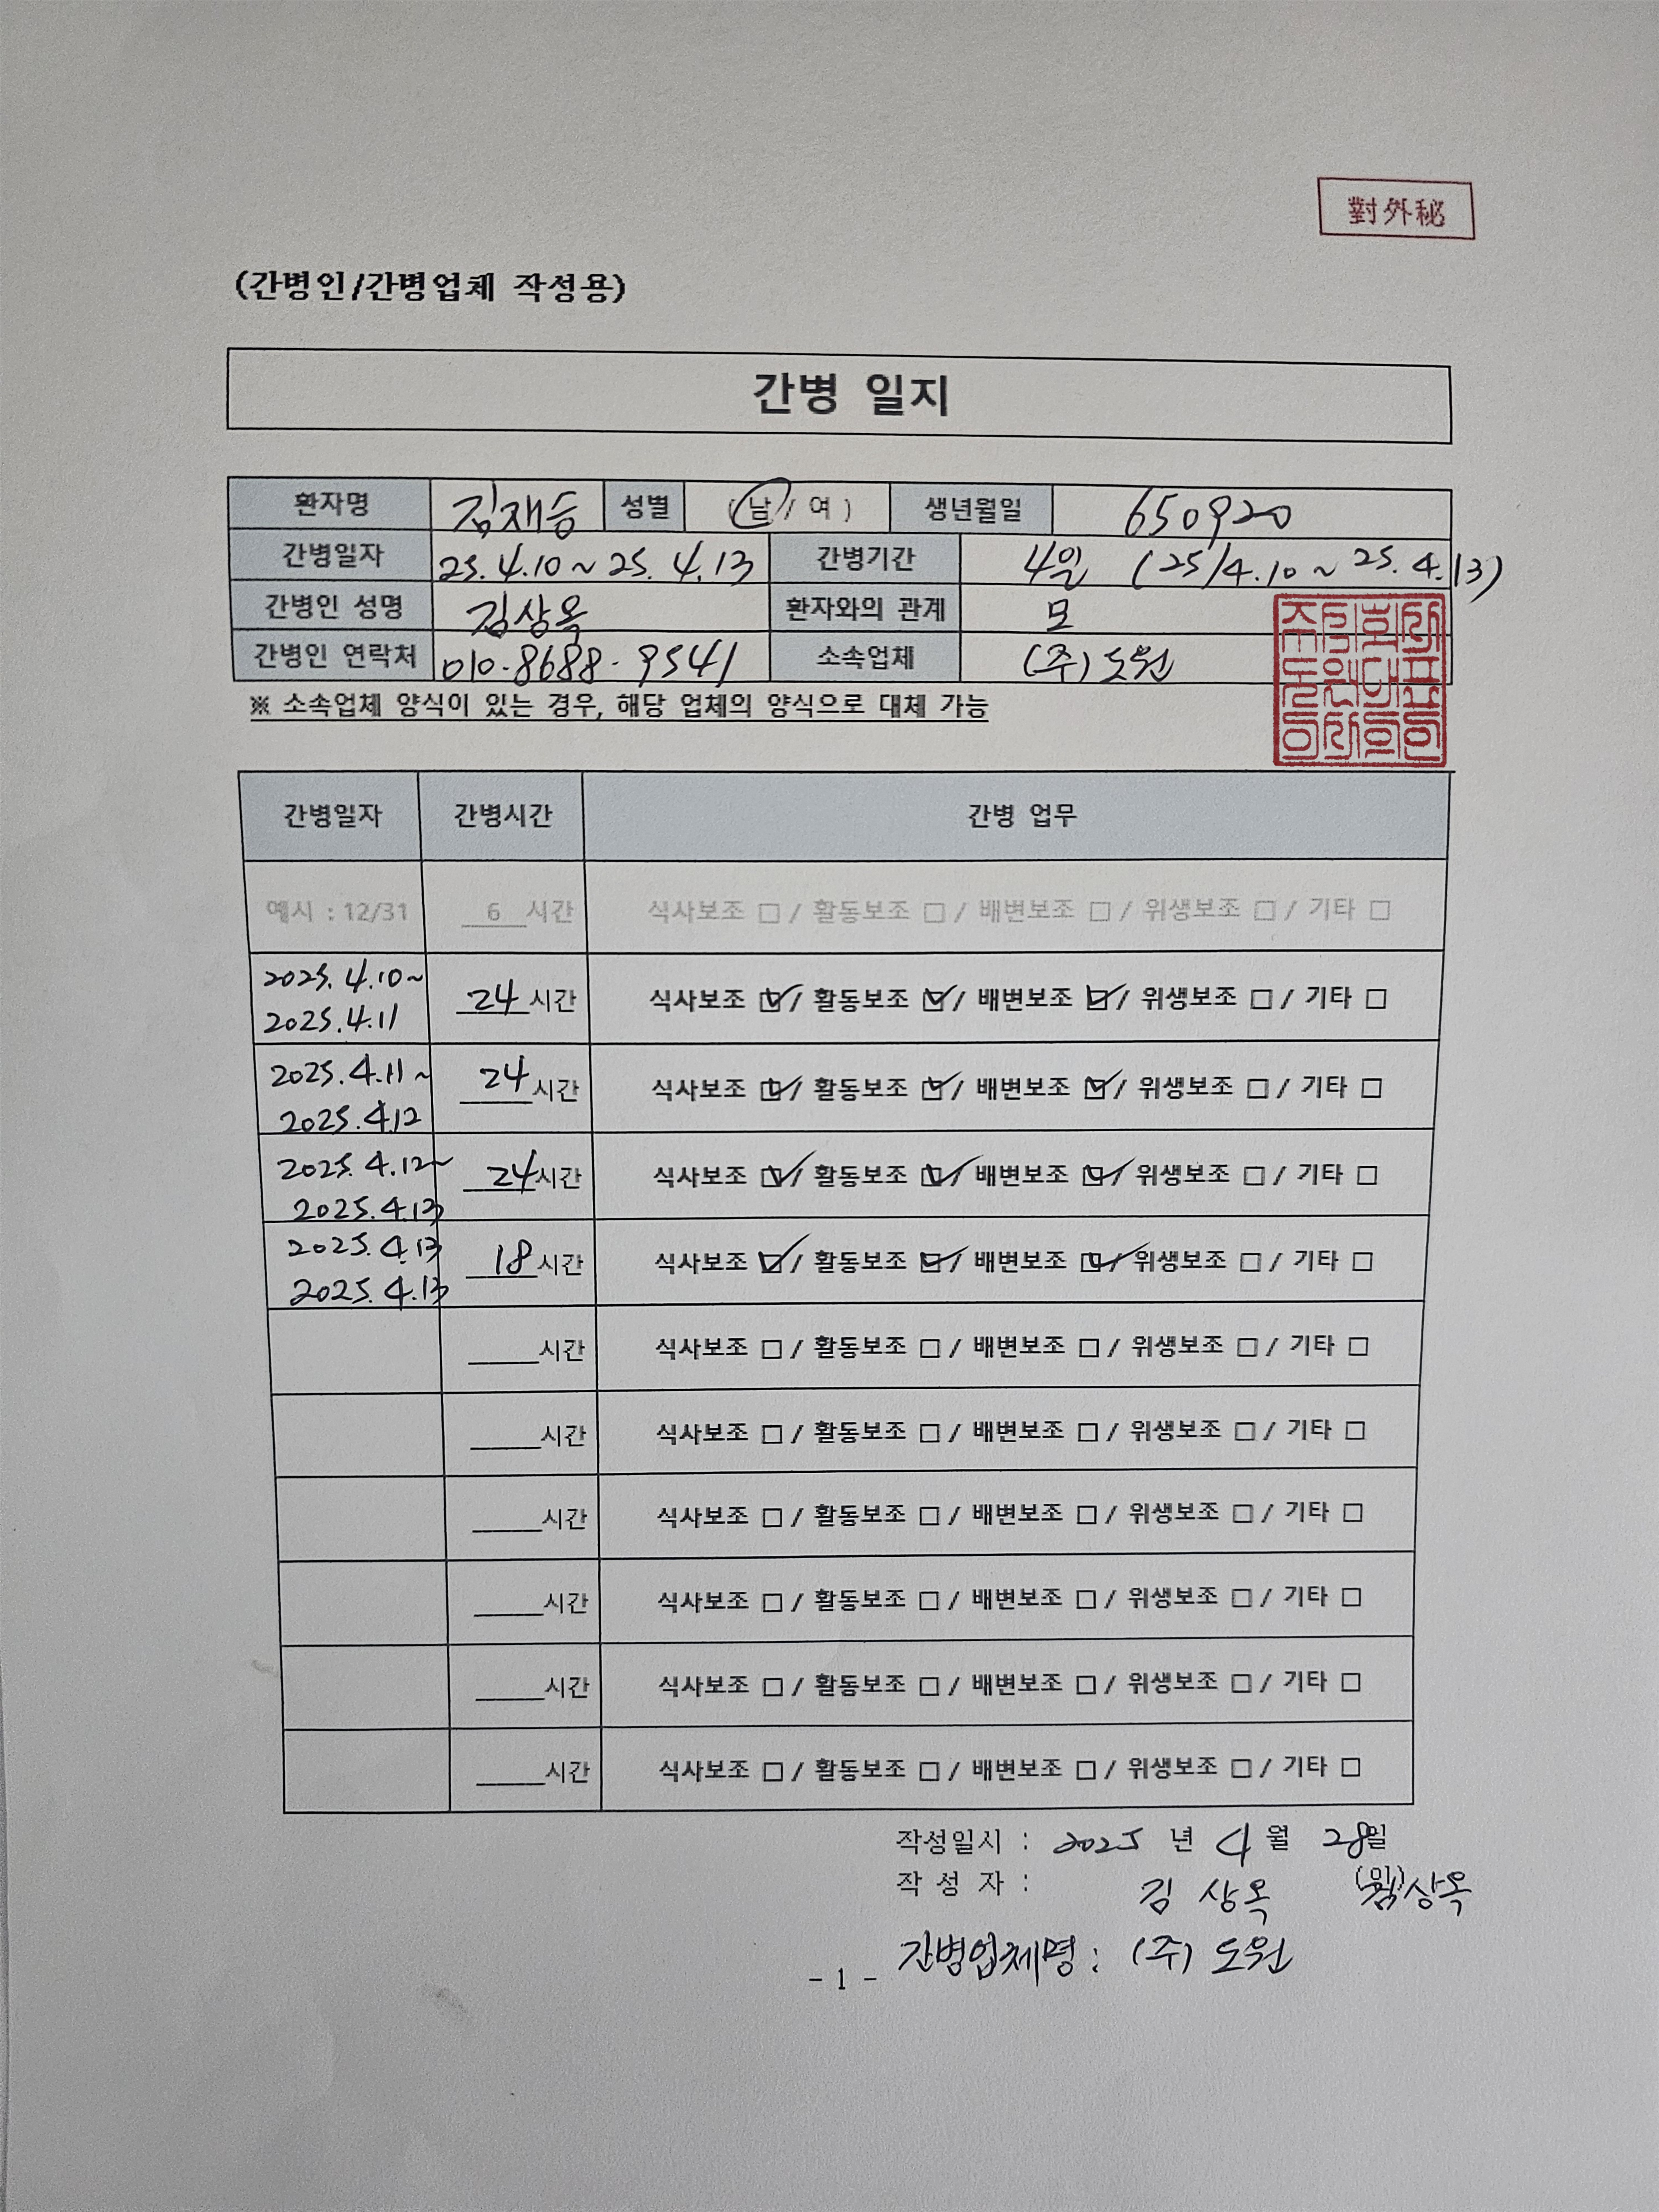 對外秘
(간병인/간병업체 작성용)
간병 일지
환자명 김재승 성별 (남/여) 생년월일 650920
간병일자 25.4.10~25.4.13 간병기간 4일 (25/4.10~25.4.13)
간병인 성명 김상옥 환자와의 관계 모
간병인 연락처 010-8688-9541 소속업체 (주)도원
※ 소속업체 양식이 있는 경우, 해당 업체의 양식으로 대체 가능
간병일자 간병시간 간병 업무
예시 : 12/31 6 시간 식사보조 □ / 활동보조 □ / 배변보조 □ / 위생보조 □ / 기타 □
2025.4.10~
2025.4.11 24 시간 식사보조 ☑ / 활동보조 ☑ / 배변보조 ☑ / 위생보조 □ / 기타 □
2025.4.11~
2025.4.12 24 시간 식사보조 ☑ / 활동보조 ☑ / 배변보조 ☑ / 위생보조 □ / 기타 □
2025.4.12~
2025.4.13 24 시간 식사보조 ☑ / 활동보조 ☑ / 배변보조 ☑ / 위생보조 □ / 기타 □
2025.4.13
2025.4.13 18 시간 식사보조 ☑ / 활동보조 ☑ / 배변보조 ☑ / 위생보조 □ / 기타 □
____시간 식사보조 □ / 활동보조 □ / 배변보조 □ / 위생보조 □ / 기타 □
____시간 식사보조 □ / 활동보조 □ / 배변보조 □ / 위생보조 □ / 기타 □
____시간 식사보조 □ / 활동보조 □ / 배변보조 □ / 위생보조 □ / 기타 □
____시간 식사보조 □ / 활동보조 □ / 배변보조 □ / 위생보조 □ / 기타 □
____시간 식사보조 □ / 활동보조 □ / 배변보조 □ / 위생보조 □ / 기타 □
____시간 식사보조 □ / 활동보조 □ / 배변보조 □ / 위생보조 □ / 기타 □
작성일시 : 2025 년 4 월 28일
작 성 자 : 김 상옥 (인) 김상옥
간병업체명 : (주) 도원
- 1 -